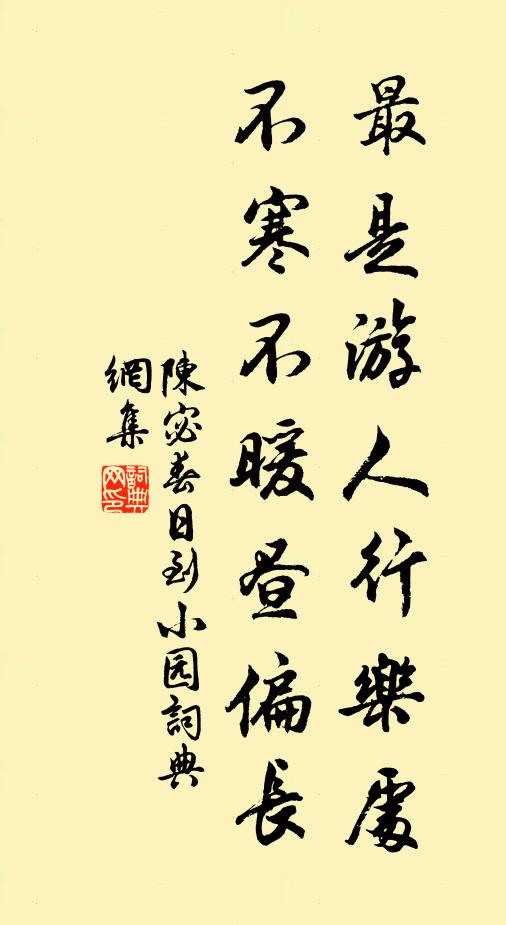 最是游人行樂處
不寒不暖昼偏長
陳宓春日到小园詞典
網集
詞典
网印